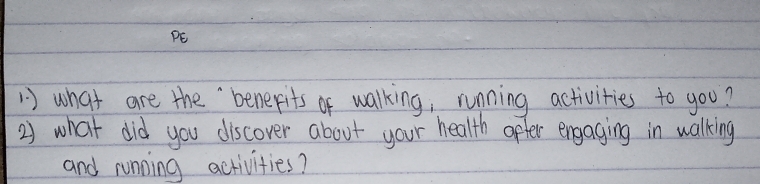 PE
1.) what are the benefits of walking, running activities to you?
2) what did you discover about your health after engaging in walking
and running activities?